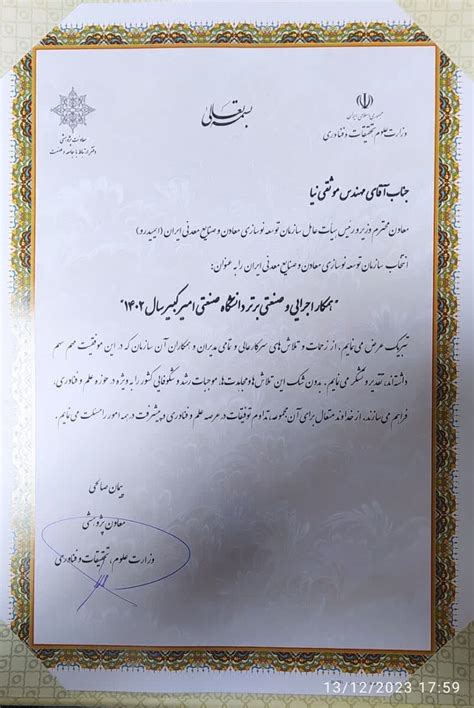 بسمه تعالی
جمهوری اسلامی ایران
وزارت علوم تحقیقات و فناوری
معاونت پژوهشی
دفتر ارتباط با جامعه و صنعت
جناب آقای مهندس موثقی نیا
معاون محترم وزیر و رئیس هیأت عامل سازمان توسعه نوسازی معادن و صنایع معدنی ایران (ایمیدرو)
انتخاب سازمان توسعه نوسازی معادن و صنایع معدنی ایران را به عنوان:
"همکار اجرایی و صنعتی برتر دانشگاه صنعتی امیرکبیر سال ۱۴۰۲"
تبریک عرض می‌نمایم. از زحمات و تلاش‌های سرکارعالی و تمامی مدیران و همکاران آن سازمان که در این موفقیت مهم سهم
داشته‌اند، تقدیر و تشکر می‌نمایم. بدون شک این تلاش‌ها و مجاهدت‌ها، موجبات رشد و شکوفایی کشور را به ویژه در حوزه علم و فناوری،
فراهم می‌سازند. از خداوند متعال برای آن مجموعه، تداوم توفیقات در عرصه علم و فناوری و پیشرفت در همه امور را مسئلت می‌نمایم.
پیمان صالحی
معاون پژوهشی
وزارت علوم، تحقیقات و فناوری
13/12/2023 17:59